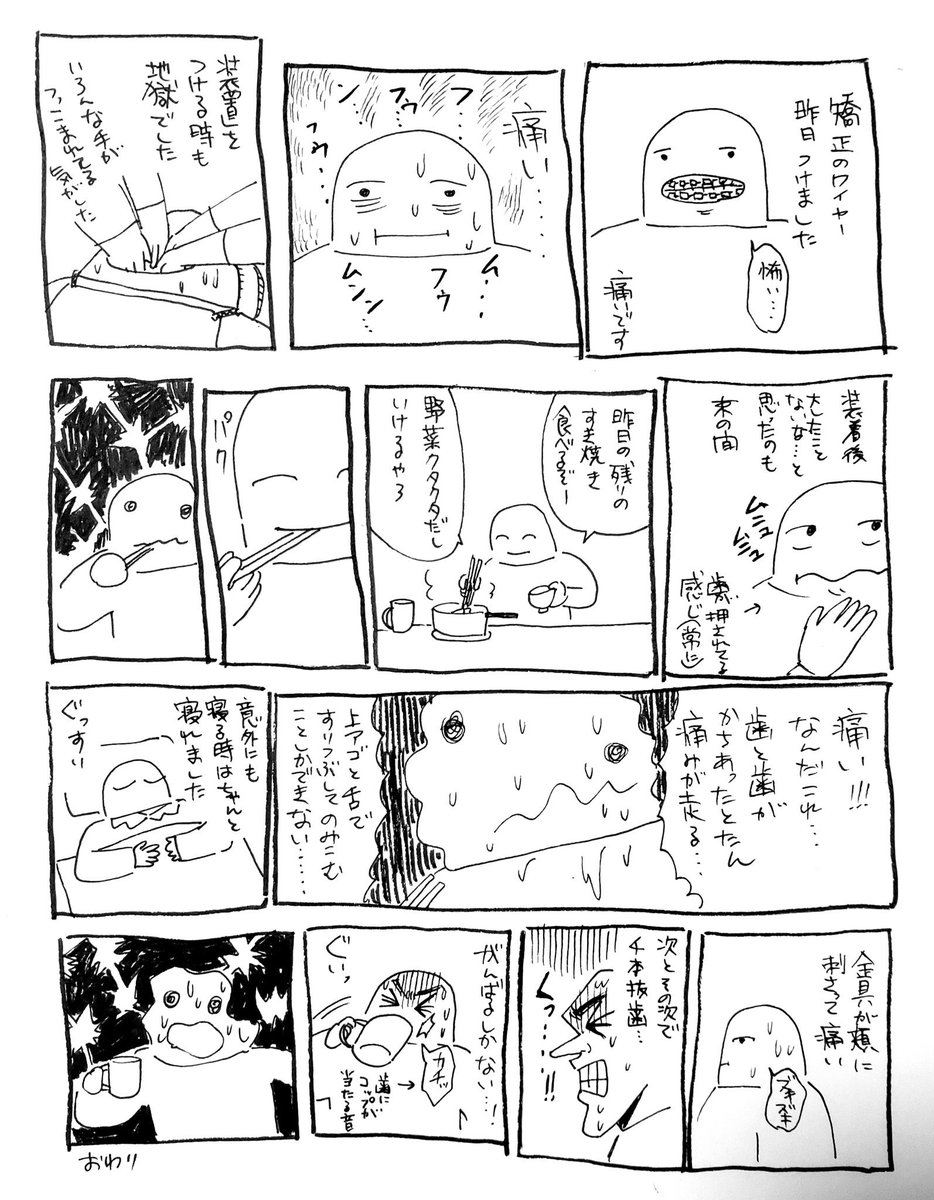 矯正のワイヤー
昨日つけました
怖い…
痛いです
痛い……
フ
フゥ
ン
フゥ…
ム…
フゥ
ムンン…
装置を
つける時も
地獄でした
いろんな手が
つっこまれてる
気がした
装着後
たいしたこと
ないな…と
思ったのも
束の間
ムミュ
ムミュ
歯が押されてる
感じ(常に)
昨日の残りの
すき焼き
食べるぞー
野菜クタクタだし
いけるやろ
パク
痛い!!!
なんだこれ…
歯と歯が
かちあったとたん
痛みが走る…
上アゴと舌で
すりつぶしてのみこむ
ことしかできない……
意外にも
寝る時はちゃんと
寝れました
ぐっすり
金具が頬に
刺さって痛い
ズキズキ
次とその次で
4本抜歯…
くっ…!!
がんばるしかない…!
ぐいっ
カチッ
歯に
コップが
当たる音
おわり